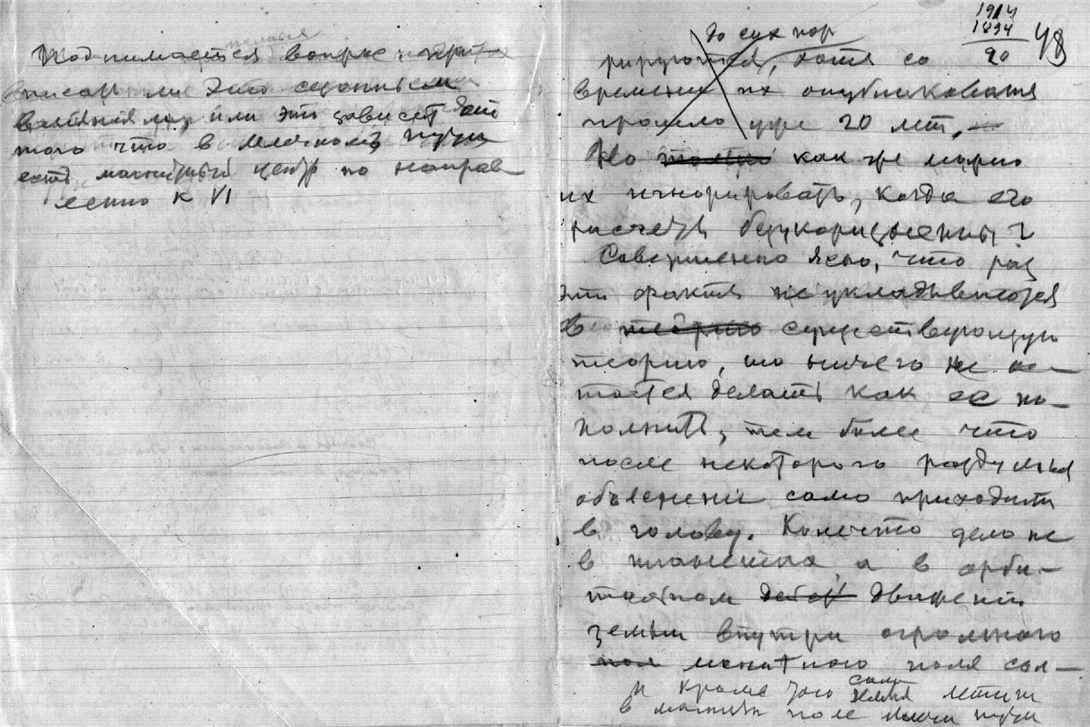 Поднимается вопрос нельзя
вписать ли это
или это зависит от
того что в млечном пути
есть магнитный центр по направ
лению к VI
1914
1894
20
48
до сих пор
рируются, хотя со
времени их опубликования
прошло уже 20 лет. —
Но только как же можно
их игнорировать, когда его
расчеты безукоризненны?
Совершенно ясно, что раз
эти факты не укладываются
в теорию существующую
теорию, то ничего не ос-
тается делать как ее по-
полнить, тем более что
после некоторого раздумья
объяснение само приходит
в голову. Конечно дело не
в планетах а в орби-
тальном движении
земли внутри огромного
поля магнитного поля сол-
и кроме того сама земля летит
в магнитн поле млечн пути